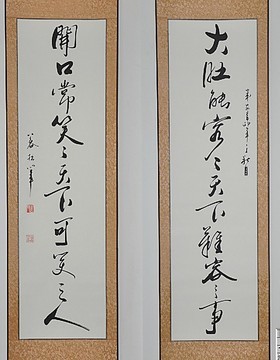 大肚能容々天下難容之事
開口常笑々天下可笑之人